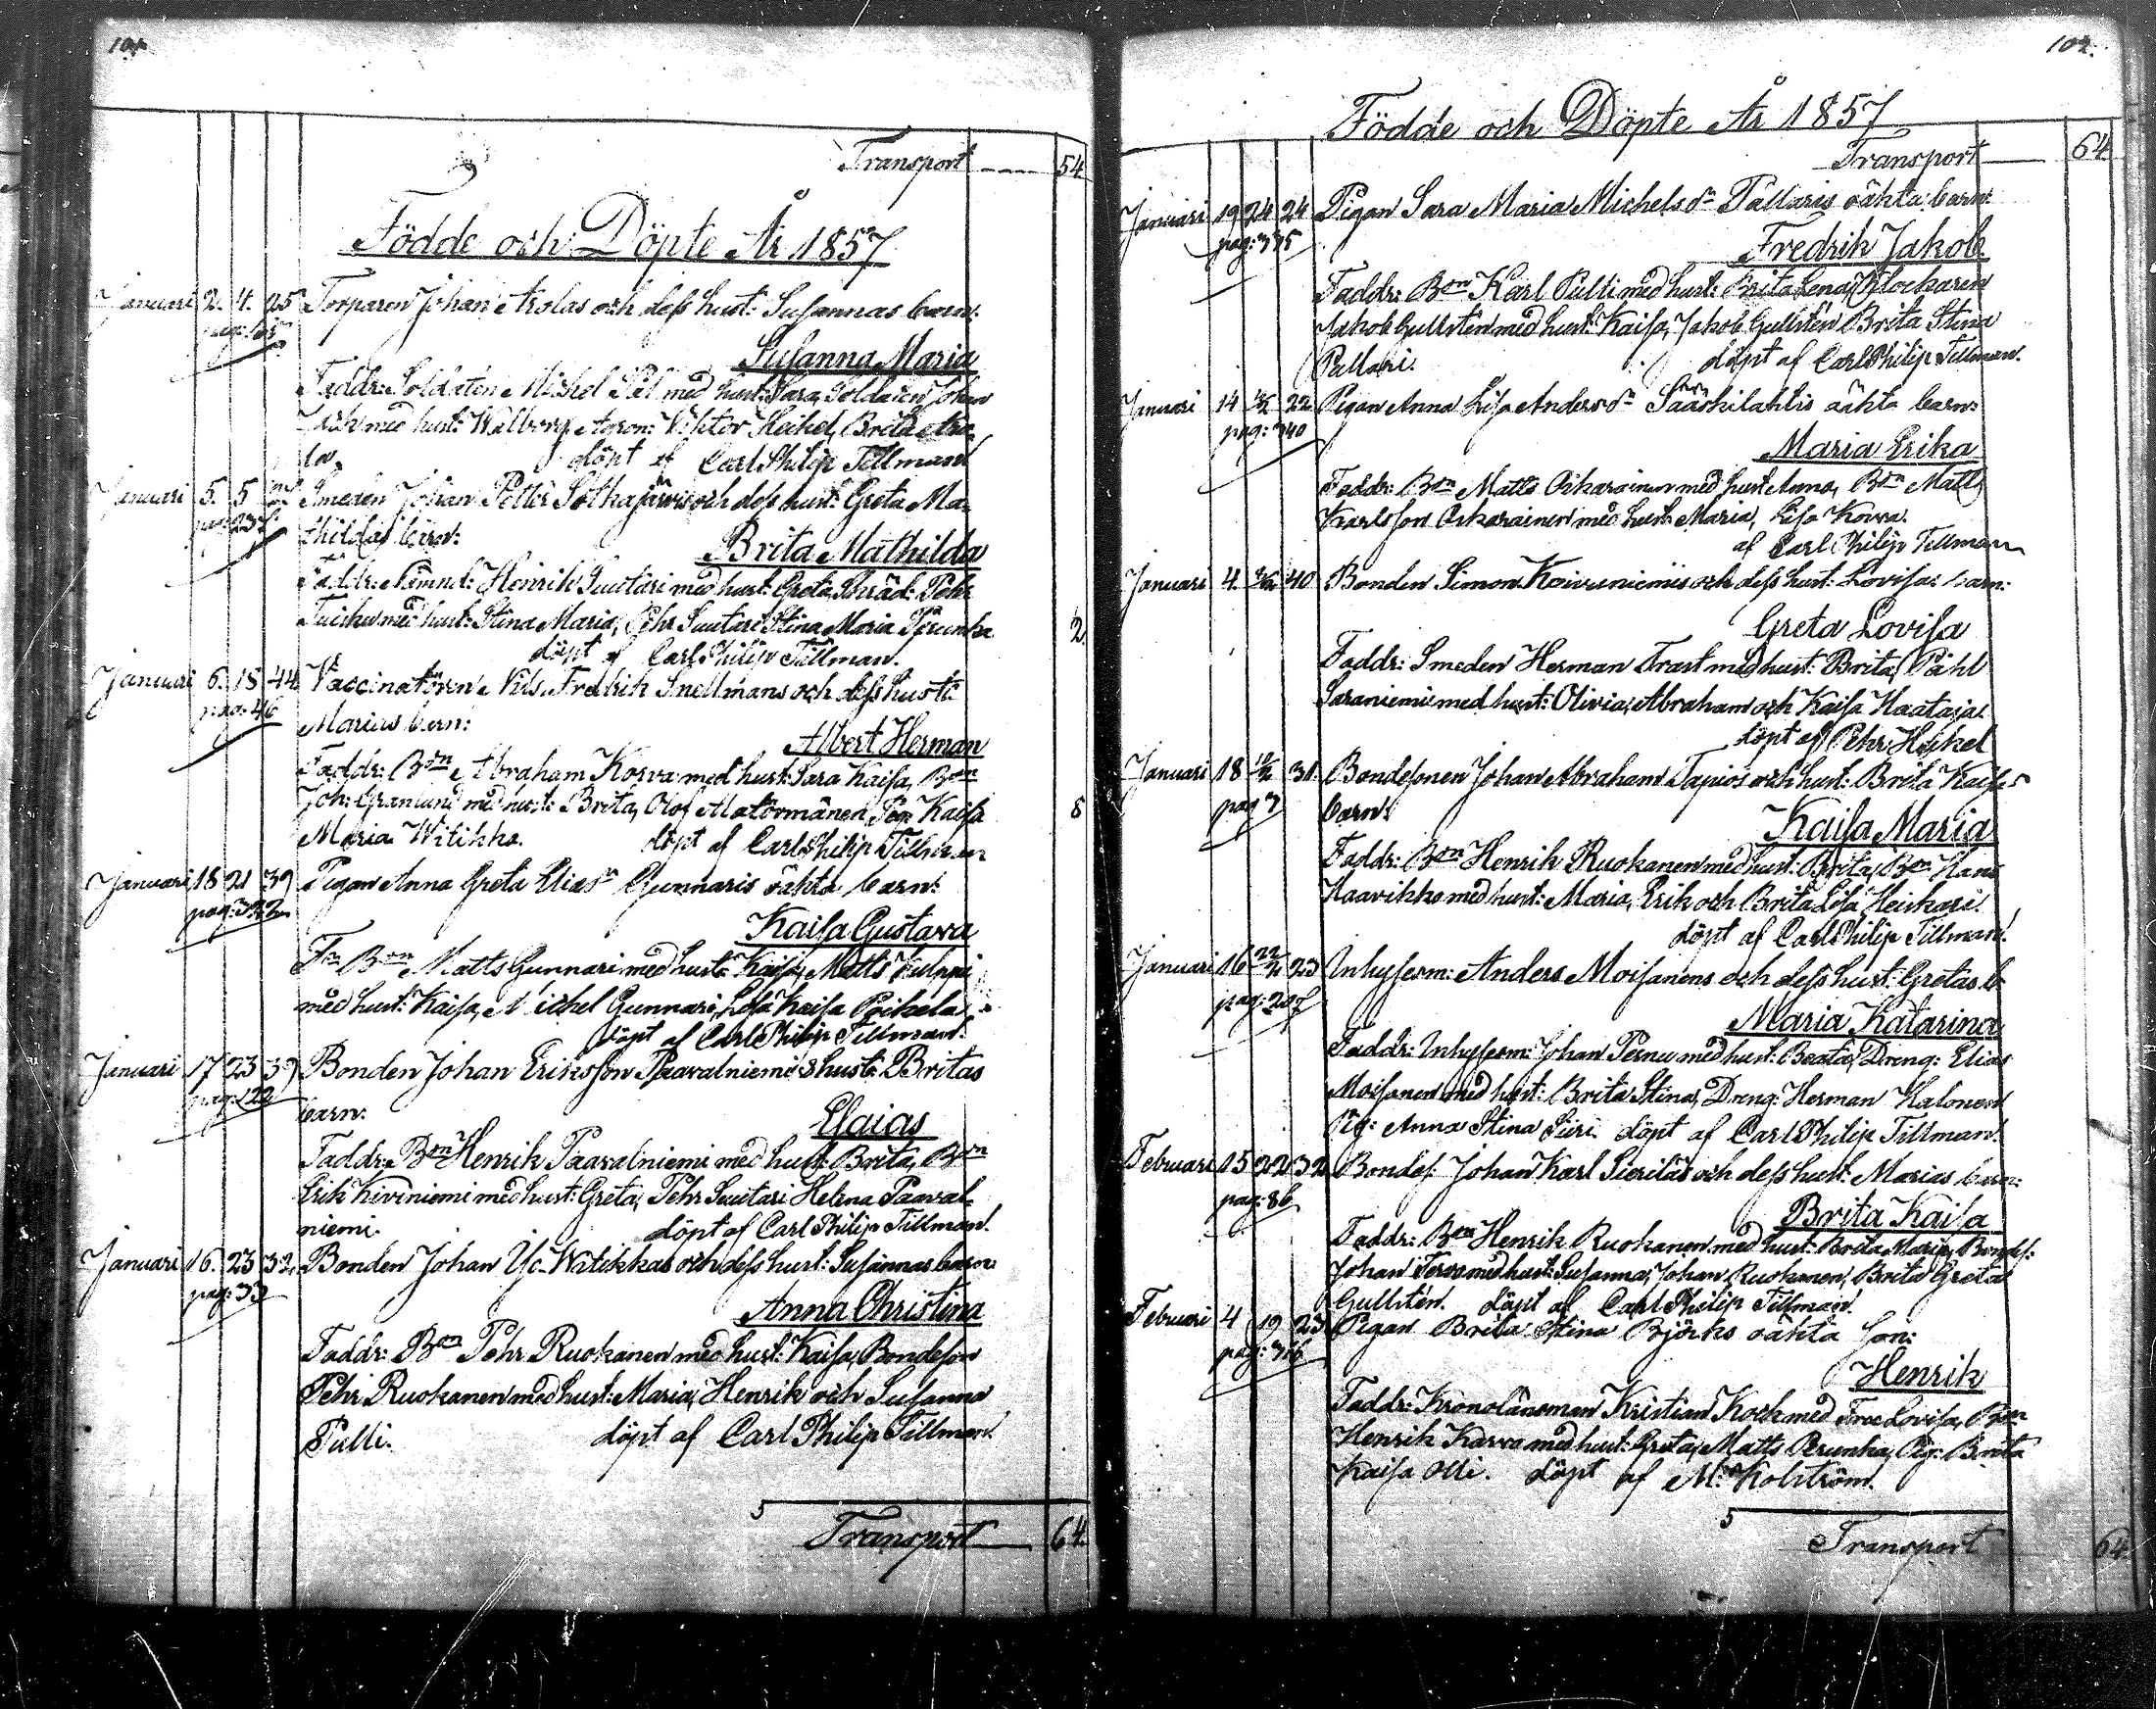 101.
Transport 54
Födde och Döpte År 1857
Januari 2. 4. 25 Torparen Johan Askolas och dess hust: Susannas barn:
Susanna Maria
Faddr: Soldaten Mickel Pil med hust: Sara, Soldaten Johan
med hust: Walborg, Viktor Heikel, Brita
döpt af Carl Philip Tillman
Januari 5. 5 Smeden Johan Petter Sotkajärvis och dess hust: Greta Ma-
thildas barn:
Brita Mathilda
Faddr: Nämnd: Henrik Suutari med hust: Greta, Skräd: Pehr
med hust: Stina Maria, Pehr Suutari Stina Maria Perunka
2
döpt af Carl Philip Tillman.
Januari 6. 18 44 Vaccinatören Nils Fredrik Snellmans och dess hust:
pag: 46
Marias barn:
Albert Herman
Faddr: Bon Abraham Korva med hust: Sara Kaisa, Bon
Joh: Granlund med hust: Brita, Olof Matörmänen, Pig: Kaisa 8
Maria Witikka. döpt af Carl Philip Tillman
Januari 18 21 39 Pigan Anna Greta Eliasdr Gunnaris oähta barn:
pag: 322
Kaisa Gustava
Fr Bon Matts Gunnari med hust: Kaisa, Matts Kulppi
med hust: Kaisa, Mickel Gunnari, Lisa Kaisa Poikela
döpt af Carl Philip Tillman.
Januari 17 23 39 Bonden Johan Eriksson Paavalniemis hust: Britas
pag: 122
barn:
Esaias
Faddr: Bon Henrik Paavalniemi med hust: Brita, Bon
Erik Kiviniemi med hust: Greta, Pehr Suutari Helena Paaval-
niemi. döpt af Carl Philip Tillman.
Januari 16. 23 32 Bonden Johan Yc. Witikkas och dess hust: Susannas barn:
pag: 33
Anna Christina
Faddr: Bon Pehr Ruokanen med hust: Kaisa, Bondeson
Pehr Ruokanen med hust: Maria, Henrik och Susanna
Pulli. döpt af Carl Philip Tillman
5
Transport 64.
102.
Födde och Döpte År 1857
Transport 64
Januari 19 24 24 Pigan Sara Maria Michelsdr Pallaris oähta barn:
pag: 335
Fredrik Jakob
Faddr: Bon Karl Pulli med hust: Brita Lena, Klockaren
Jakob Gullstén med hust: Kaisa, Jakob Gullstén Brita Stina
Pallari. döpt af Carl Philip Tillman.
Januari 14 22 Pigan Anna Lisa Andersdr Sääskilahtis oähta barn:
pag: 340
Maria Erika
Faddr: Bon Matts Oikarainen med hust Anna, Bon Matts
Karlsson Oikarainen med hust: Maria, Lisa Korva.
af Carl Philip Tillman
Januari 4. 40 Bonden Simon Koivuniemis och dess hust: Lovisas barn:
Greta Lovisa
Faddr: Smeden Herman Trast med hust: Brita, Påhl
Saraniemi med hust: Olivia, Abraham och Kaisa Haataja.
döpt af Pehr Heikel
Januari 18 31. Bondesonen Johan Abraham Tapios och hust: Brita Kaisas
pag 7 barn:
Kaisa Maria
Faddr: Bon Henrik Ruokanen med hust: Brita, Bon Hans
Kaavikko med hust: Maria, Erik och Brita Lisa Heiskari.
döpt af Carl Philip Tillman.
Januari 16 22/2 23 Inhysesm: Anders Moisanens och dess hust: Gretas b:
pag: 207
Maria Katarina
Faddr: Inhysesm: Johan Pernu med hust: Beata, Dreng: Elias
Moisanen med hust: Brita Stina, Dreng: Herman Halonen
Pig: Anna Stina Siiri. döpt af Carl Philip Tillman.
Februari 15 22 32 Bondes: Johan Karl Sieriläs och dess hust: Marias barn:
pag: 86
Brita Kaisa
Faddr: Bon Henrik Ruokanen med hust: Brita Maria, Bondes:
Johan Tervo med hust: Susanna, Johan Ruokanen, Brita Greta
Gullstén. döpt af Carl Philip Tillman.
Februari 4 19 23 Pigan Brita Stina Björks oähta son:
pag: 316
Henrik
Faddr: Kronolänsman Kristian Kock med Fru Lovisa, Bon
Henrik Karvo med hust: Greta, Matts Perunka, Pig: Brita
Kaisa Olli. döpt af M. Kolström.
5
Transport 64